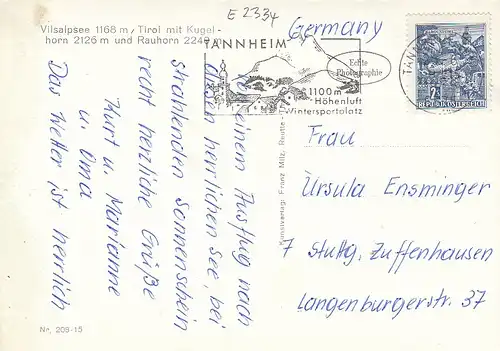 E 2334
Vilsalpsee 1168 m, Tirol mit Kugel-
horn 2126 m und Rauhorn 2240 m
Germany
TANNHEIM
1100m
Höhenluft
Wintersportplatz
Echte
Photographie
REPUBLIK ÖSTERREICH
einem Ausflug nach
diesem herrlichen See, bei
strahlenden Sonnenschein
recht herzliche Grüße
Kurt u. Marianne
u. Oma
Das Wetter ist herrlich
Kunstverlag: Franz Milz, Reutte
Frau
Ursula Ensminger
7 Stuttg. Zuffenhausen
Langenburgerstr. 37
No. 209-15